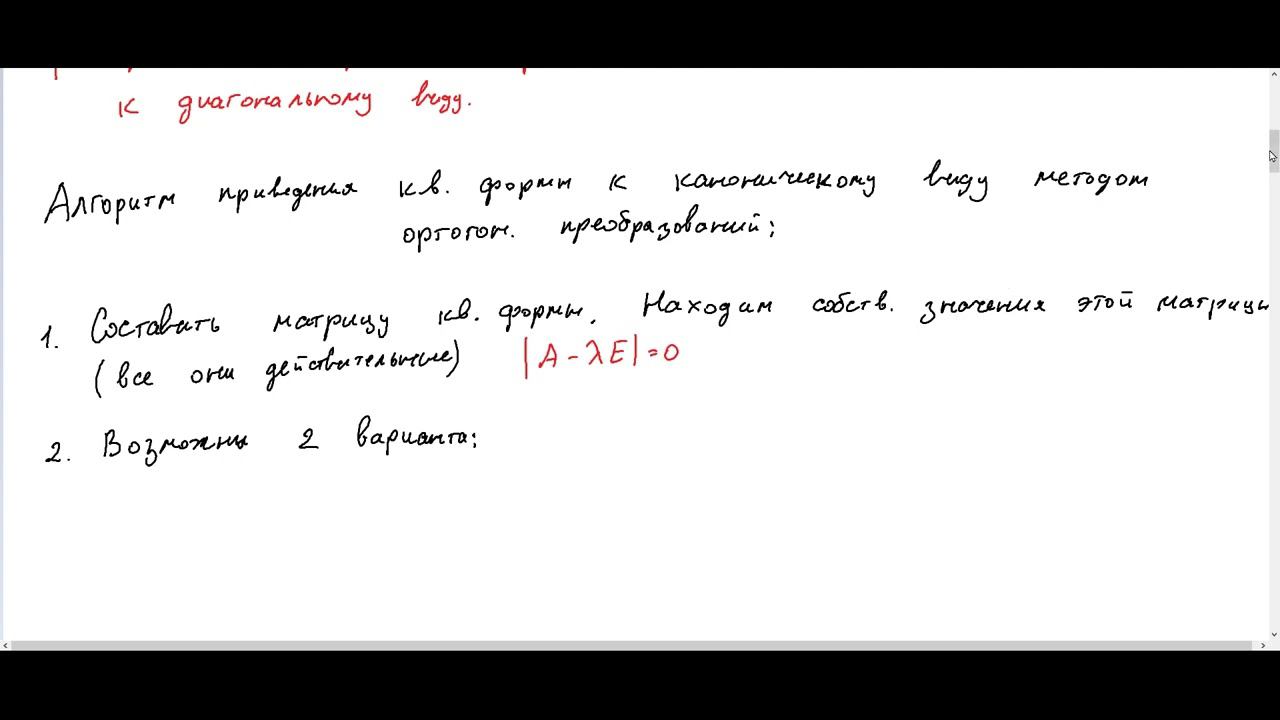 к диагональному виду.
Алгоритм приведения кв. формы к каноническому виду методом
ортогон. преобразований:
1. Составить матрицу кв. формы. Находим собств. значения этой матрицы
(все они действительные) |A - λE| = 0
2. Возможны 2 варианта: